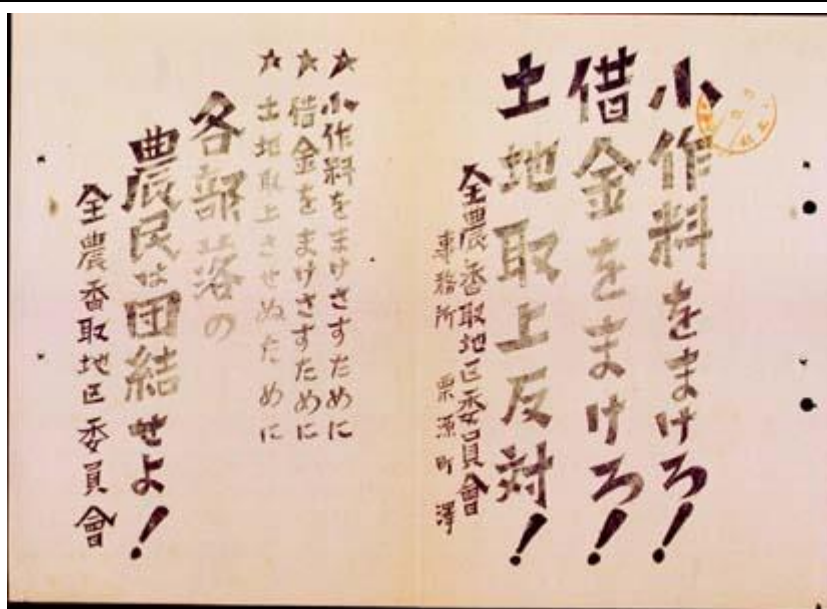 小作料をまけろ!
借金をまけろ!
土地取上反対!
全農香取地区委員會
事務所 栗源町澤
★小作料をまけさすために
★借金をまけさすために
★土地取上させぬために
各部落の
農民は団結せよ!
全農香取地区委員會